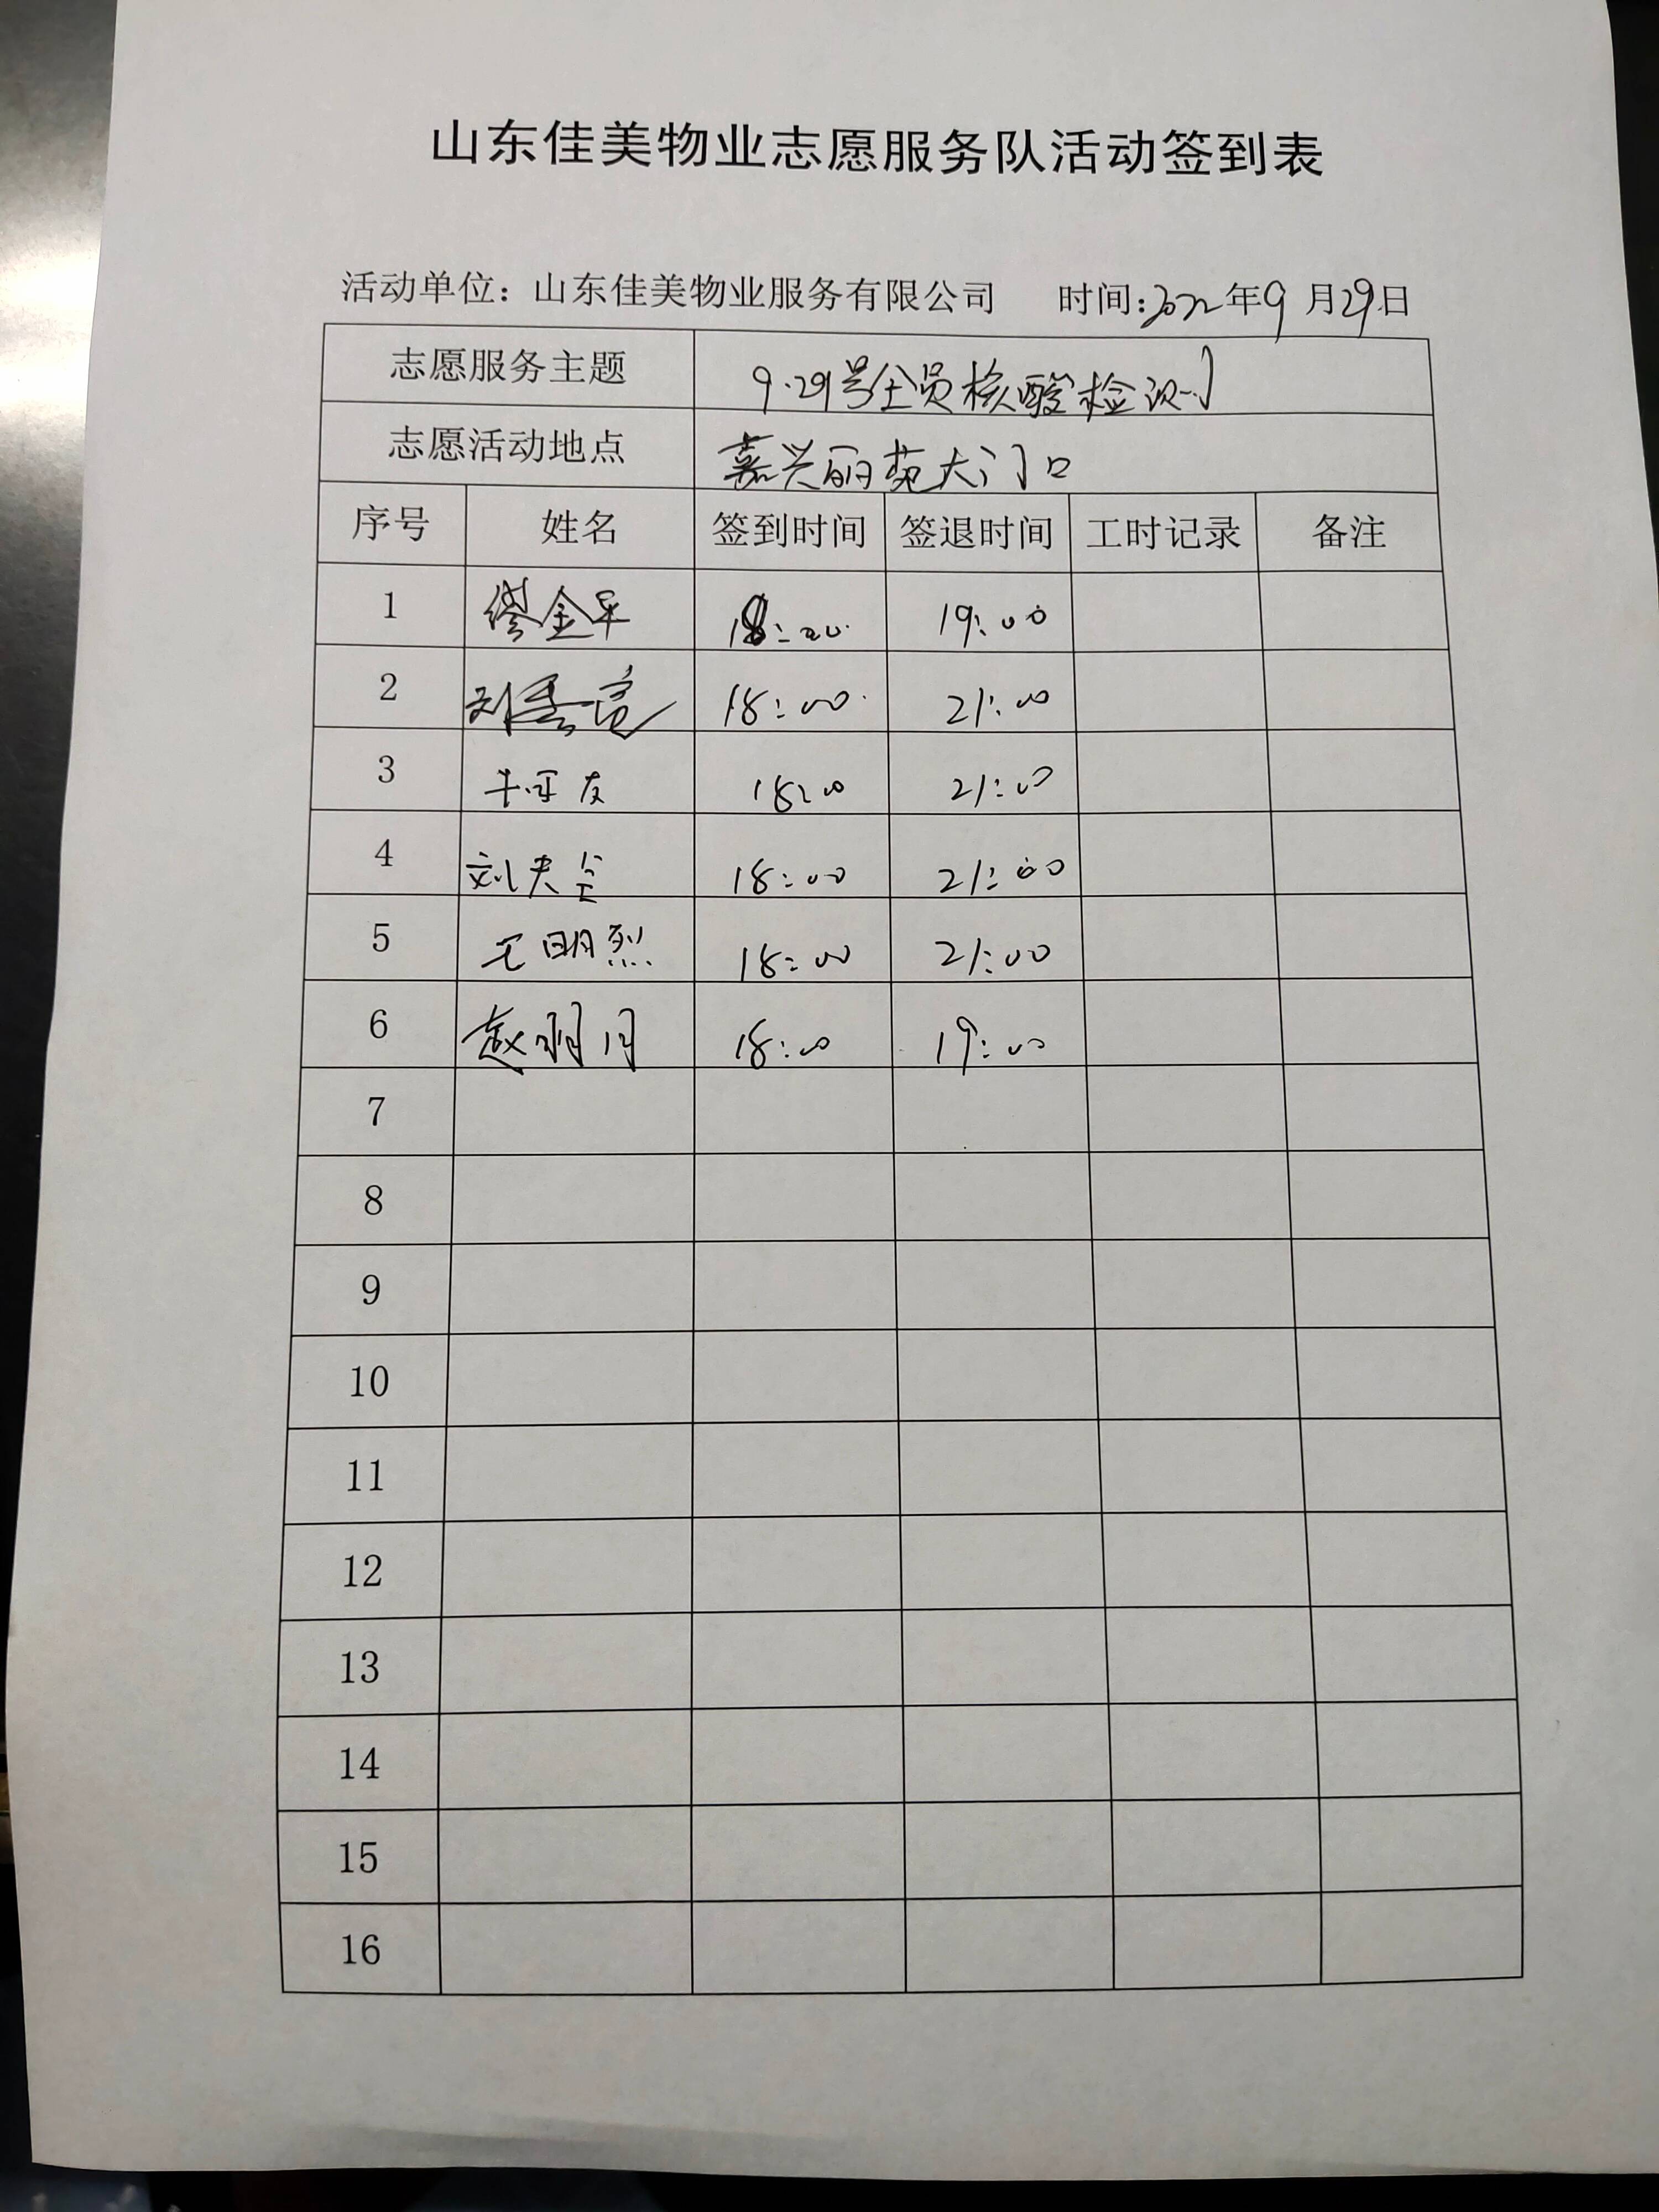 山东佳美物业志愿服务队活动签到表
活动单位：山东佳美物业服务有限公司 时间:2022年9月29日
志愿服务主题 9.29号全员核酸检测
志愿活动地点 嘉兴丽苑大门口
序号 姓名 签到时间 签退时间 工时记录 备注
1 18:00 19:00
2 18:00 21:00
3 18:00 21:00
4 18:00 21:00
5 王明烈 18:00 21:00
6 赵明月 18:00 19:00
7
8
9
10
11
12
13
14
15
16